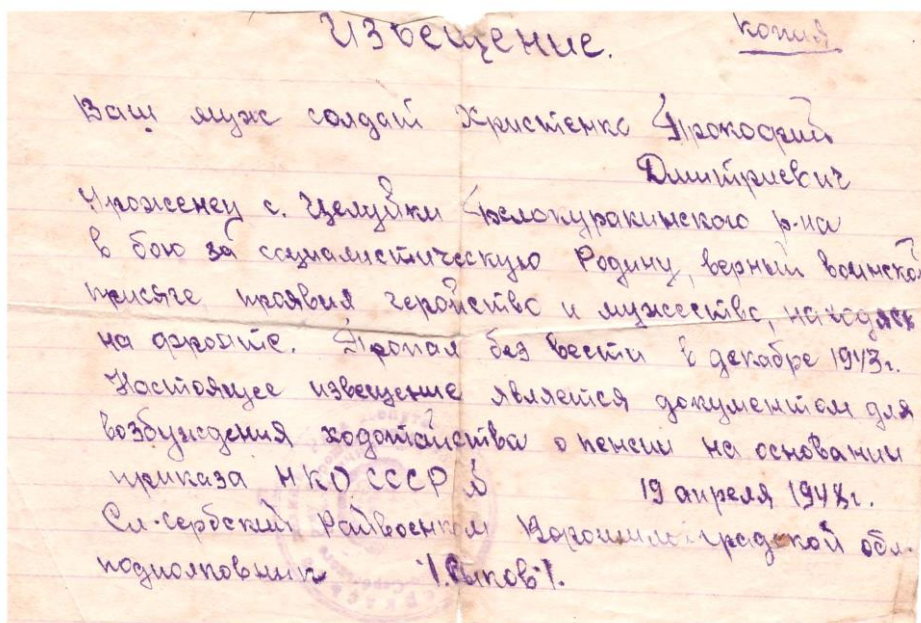 Извещение. копия
Ваш муж солдат Христенко Прокофий
Дмитриевич
Уроженец с. Целуйки Белокуракинского р-на
в бою за социалистическую Родину, верный воинской
присяге проявил геройство и мужество, находясь
на фронте. Пропал без вести в декабре 1943г.
Настоящее извещение является документом для
возбуждения ходотайства о пенсии на основании
приказа НКО СССР №
19 апреля 1948г.
Сл-Сербский Райвоенком Ворошиловградской обл.
подполковник